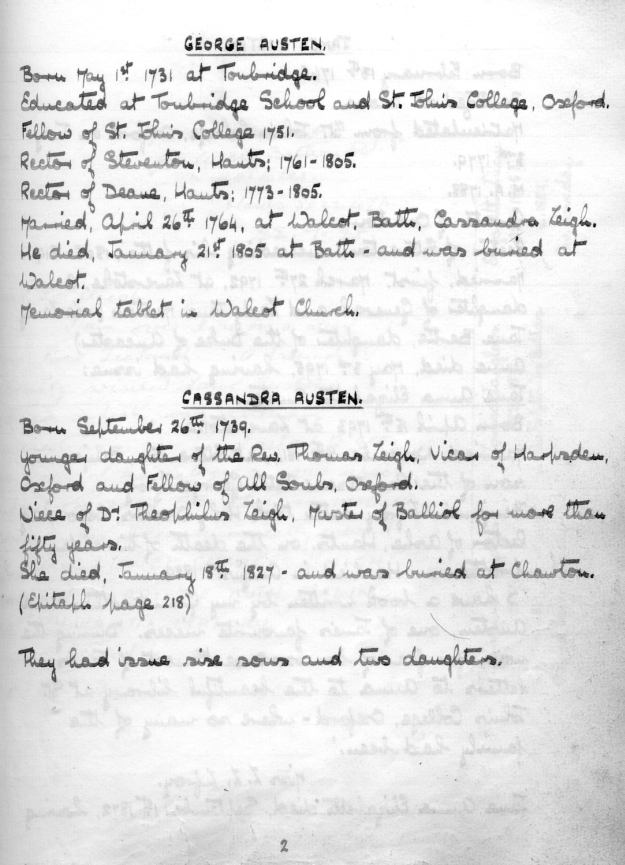 GEORGE AUSTEN.
Born May 1st 1731 at Tonbridge.
Educated at Tonbridge School and St. John's College, Oxford.
Fellow of St. John's College 1751.
Rector of Steventon, Hants; 1761-1805.
Rector of Deane, Hants; 1773-1805.
Married, April 26th 1764, at Walcot, Bath, Cassandra Leigh.
He died, January 21st 1805 at Bath - and was buried at
Walcot.
Memorial tablet in Walcot Church.
CASSANDRA AUSTEN.
Born September 26th 1739.
younger daughter of the Rev. Thomas Leigh, Vicar of Harpsden,
Oxford and Fellow of All Souls, Oxford.
Niece of Dr Theophilus Leigh, Master of Balliol for more than
fifty years.
She died, January 18th 1827 - and was buried at Chawton.
(Epitaph page 218)
They had issue six sons and two daughters.
2